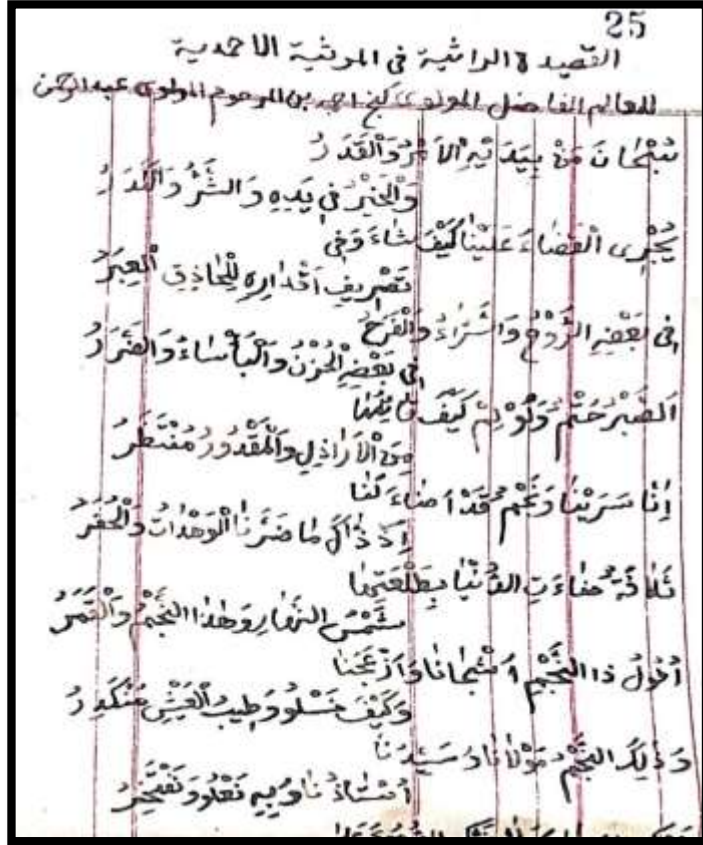 25
القصيدة الراثية في المرثية الاحمدية
للعالم الفاضل المولوى كنج احمد بن المرحوم المولوى عبد الرحمن
سُبْحَانَ مَنْ بِيَدَيْهِ الْاَمْرُ وَالْقَدَرُ
وَالْخَيْرُ فِي يَدِهِ وَالشَّرُّ وَالْكَدَرُ
يُجْرِى الْقَضَاءَ عَلَيْنَا كَيْفَ شَاءَ وَفِى
تَصْرِيفِ اَقْدَارِهِ لِلْحَاذِقِ الْعِبَرُ
فِى بَعْضِهِ الرَّوْحُ وَالسَّرَّاءُ وَالْفَرَحُ
فِى بَعْضِهِ الْحُزْنُ وَالْبَأْسَاءُ وَالضَّرَرُ
اَلصَّبْرُ حَتْمٌ وَلَوْ لِمْ كَيْفَ
مِنَ الْاَرَاذِلِ وَالْمَقْدُورُ مُنْتَظَرُ
اِنَّا سَرَيْنَا وَنَجْمٌ قَدْ اَضَاءَ لَنَا
اِذْ ذَاكَ مَا ضَرَّنَا الْوَهْدَاتُ وَالْحُفَرُ
ثَلَاثَةٌ ضَاءَتِ الدُّنْيَا بِطَلْعَتِهَا
شَمْسُ النَّهَارِ وَهٰذَا النَّجْمُ وَالْقَمَرُ
اُفُولُ ذَا النَّجْمِ اَشْجَانَا وَاَزْعَجَنَا
وَكَيْفَ نَسْلُو وَطِيبُ الْعَيْشِ مُنْكَدِرُ
وَذٰلِكَ النَّجْمُ مَوْلَانَا وَسَيِّدُنَا
اُسْتَاذُنَا وَبِهِ نَعْلُو وَنَفْتَخِرُ